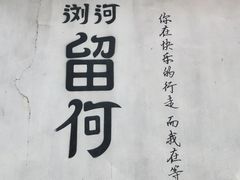 浏河
留何
你在快乐的行走 而我在等